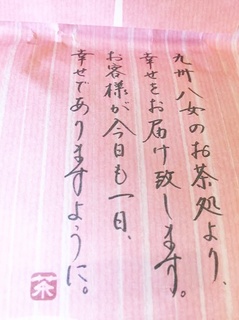 九州八女のお茶処より、
幸せをお届け致します。
お客様が今日も一日、
幸せでありますように。
茶